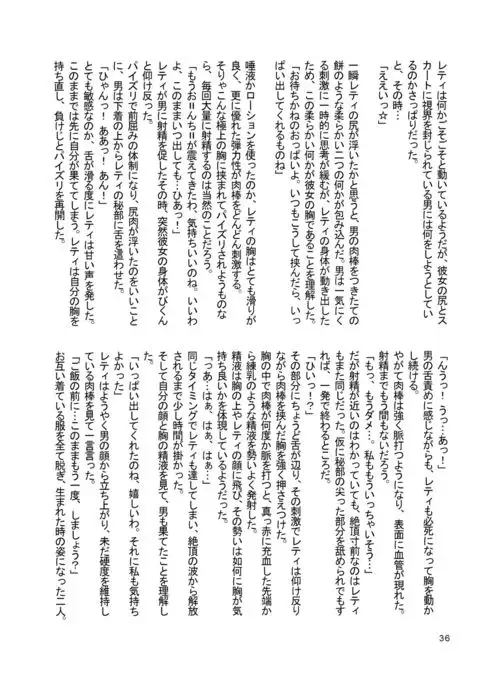 レティは何かごそごそと動いているようだが、彼女の尻とス
カートに視界を封じられている男には何をしようとしてい
るのかさっぱりだった。
と、その時…
「ええいっ☆」
一瞬レティの尻が浮いたかと思うと、男の肉棒をつきたての
餅のような柔らかい二つの何かが包み込んだ。男は一気にく
る刺激に一時的に思考が緩むが、レティの身体が動き出した
ため、この柔らかい何かが彼女の胸であることを理解した。
「お待ちかねのおっぱいよ。いつもこうして挟んだら、いっ
ぱい出してくれるものね」
唾液かローションを使ったのか、レティの胸はとても滑りが
良く、更に優れた弾力性が肉棒をどんどん刺激する。
そりゃこんな極上の胸に挟まれてパイズリされようものな
ら、毎回大量に射精するのは当然のことだろう。
「もうお〓んち〓が震えてきたわ、気持ちいいのね。いいわ
よ、このままいつ出しても…ひあっ！」
レティが男に射精を促したその時、突然彼女の身体がびくん
と仰け反った。
パイズリで前屈みの体制になり、尻肉が浮いたのをいいこと
に、男は下着の上からレティの秘部に舌を這わせた。
「ひゃんっ！　ああっ！　あん！」
とても敏感なのか、舌が滑る度にレティは甘い声を発した。
このままでは先に自分が果ててしまう。レティは自分の胸を
持ち直し、負けじとパイズリを再開した。
「んうっ！　うっ…あっ！」
男の舌責めに感じながらも、レティも必死になって胸を動か
し続ける。
やがて肉棒は強く脈打つようになり、表面に血管が現れた。
射精までもう間もないだろう。
「もっ、もうダメ…。私ももういっちゃいそう…」
だが射精が近いのはわかっていても、絶頂寸前なのはレティ
もまた同じだった。仮に秘部の尖った部分を舐められでもす
れば、一発で終わるところだ。
「ひいっ！？」
その部分にちょうど舌が辺り、その刺激でレティは仰け反り
ながら肉棒を挟んだ胸を強く押さえつけた。
胸の中で肉棒が何度か脈を打つと、真っ赤に充血した先端か
ら練乳のような精液を勢いよく発射した。
精液は胸の上やレティの顔に飛び、その勢いは如何に胸が気
持ち良いかを体現しているようだった。
「つあ…はぁ、はぁ、はぁ…」
同じタイミングでレティも達してしまい、絶頂の波から解放
されるまで少し時間が掛かった。
そして自分の顔と胸の精液を見て、男も果てたことを理解し
た。
「いっぱい出してくれたのね、嬉しいわ。それに私も気持ち
よかった」
レティはようやく男の顔から立ち上がり、未だ硬度を維持し
ている肉棒を見て一言言った。
「ご飯の前に…このままもう一度、しましょう？」
お互い着ている服を全て脱ぎ、生まれた時の姿になった二人。
36